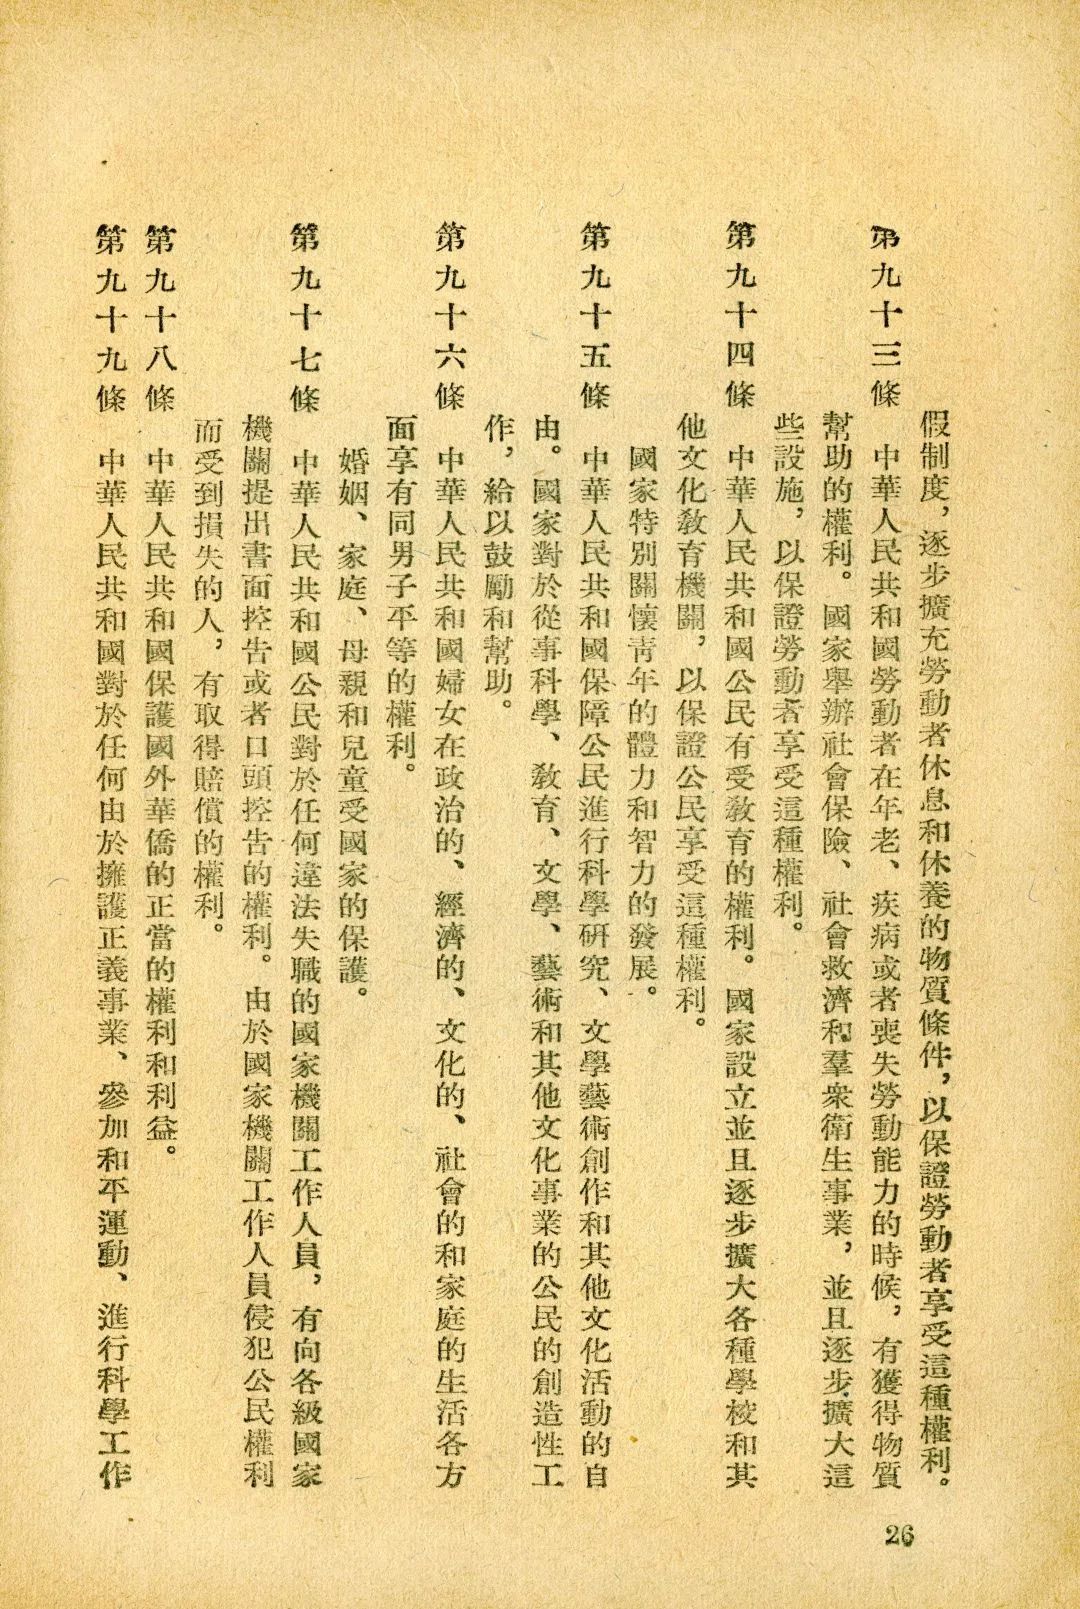 假制度，逐步擴充勞動者休息和休養的物質條件，以保證勞動者享受這種權利。
第九十三條　中華人民共和國勞動者在年老、疾病或者喪失勞動能力的時候，有獲得物質
幫助的權利。國家舉辦社會保險、社會救濟和羣衆衛生事業，並且逐步擴大這
些設施，以保證勞動者享受這種權利。
第九十四條　中華人民共和國公民有受敎育的權利。國家設立並且逐步擴大各種學校和其
他文化敎育機關，以保證公民享受這種權利。
國家特別關懷靑年的體力和智力的發展。
第九十五條　中華人民共和國保障公民進行科學研究、文學藝術創作和其他文化活動的自
由。國家對於從事科學、敎育、文學、藝術和其他文化事業的公民的創造性工
作，給以鼓勵和幫助。
第九十六條　中華人民共和國婦女在政治的、經濟的、文化的、社會的和家庭的生活各方
面享有同男子平等的權利。
婚姻、家庭、母親和兒童受國家的保護。
第九十七條　中華人民共和國公民對於任何違法失職的國家機關工作人員，有向各級國家
機關提出書面控告或者口頭控告的權利。由於國家機關工作人員侵犯公民權利
而受到損失的人，有取得賠償的權利。
第九十八條　中華人民共和國保護國外華僑的正當的權利和利益。
第九十九條　中華人民共和國對於任何由於擁護正義事業、參加和平運動、進行科學工作
26